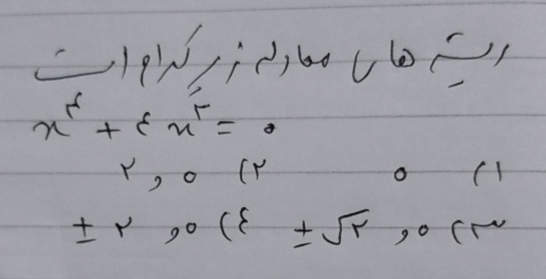 ریشه های معادله زیر کدام است
x⁴ + ۴x² = ۰
۱) ۰ ۲) ۰ و ۲
۳) ۰ و ±√۲ ۴) ۰ و ±۲